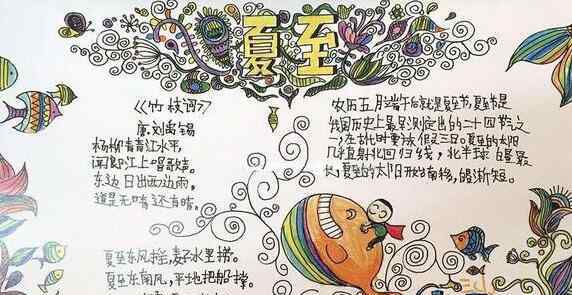 夏至
《竹枝词》
唐.刘禹锡
杨柳青青江水平,
闻郎江上唱歌声。
东边日出西边雨,
道是无晴还有晴。
农历五月端午后就是夏至节,夏至是
我国历史上最早测定出的二十四节气之
一,在古代时重视,很
夏至的太阳
几直射北回归线,北半球
最
长,夏至的太阳开始南移,
渐短。
夏至东风摇,麦子水里捞。
夏至东南风,平地把船撑。